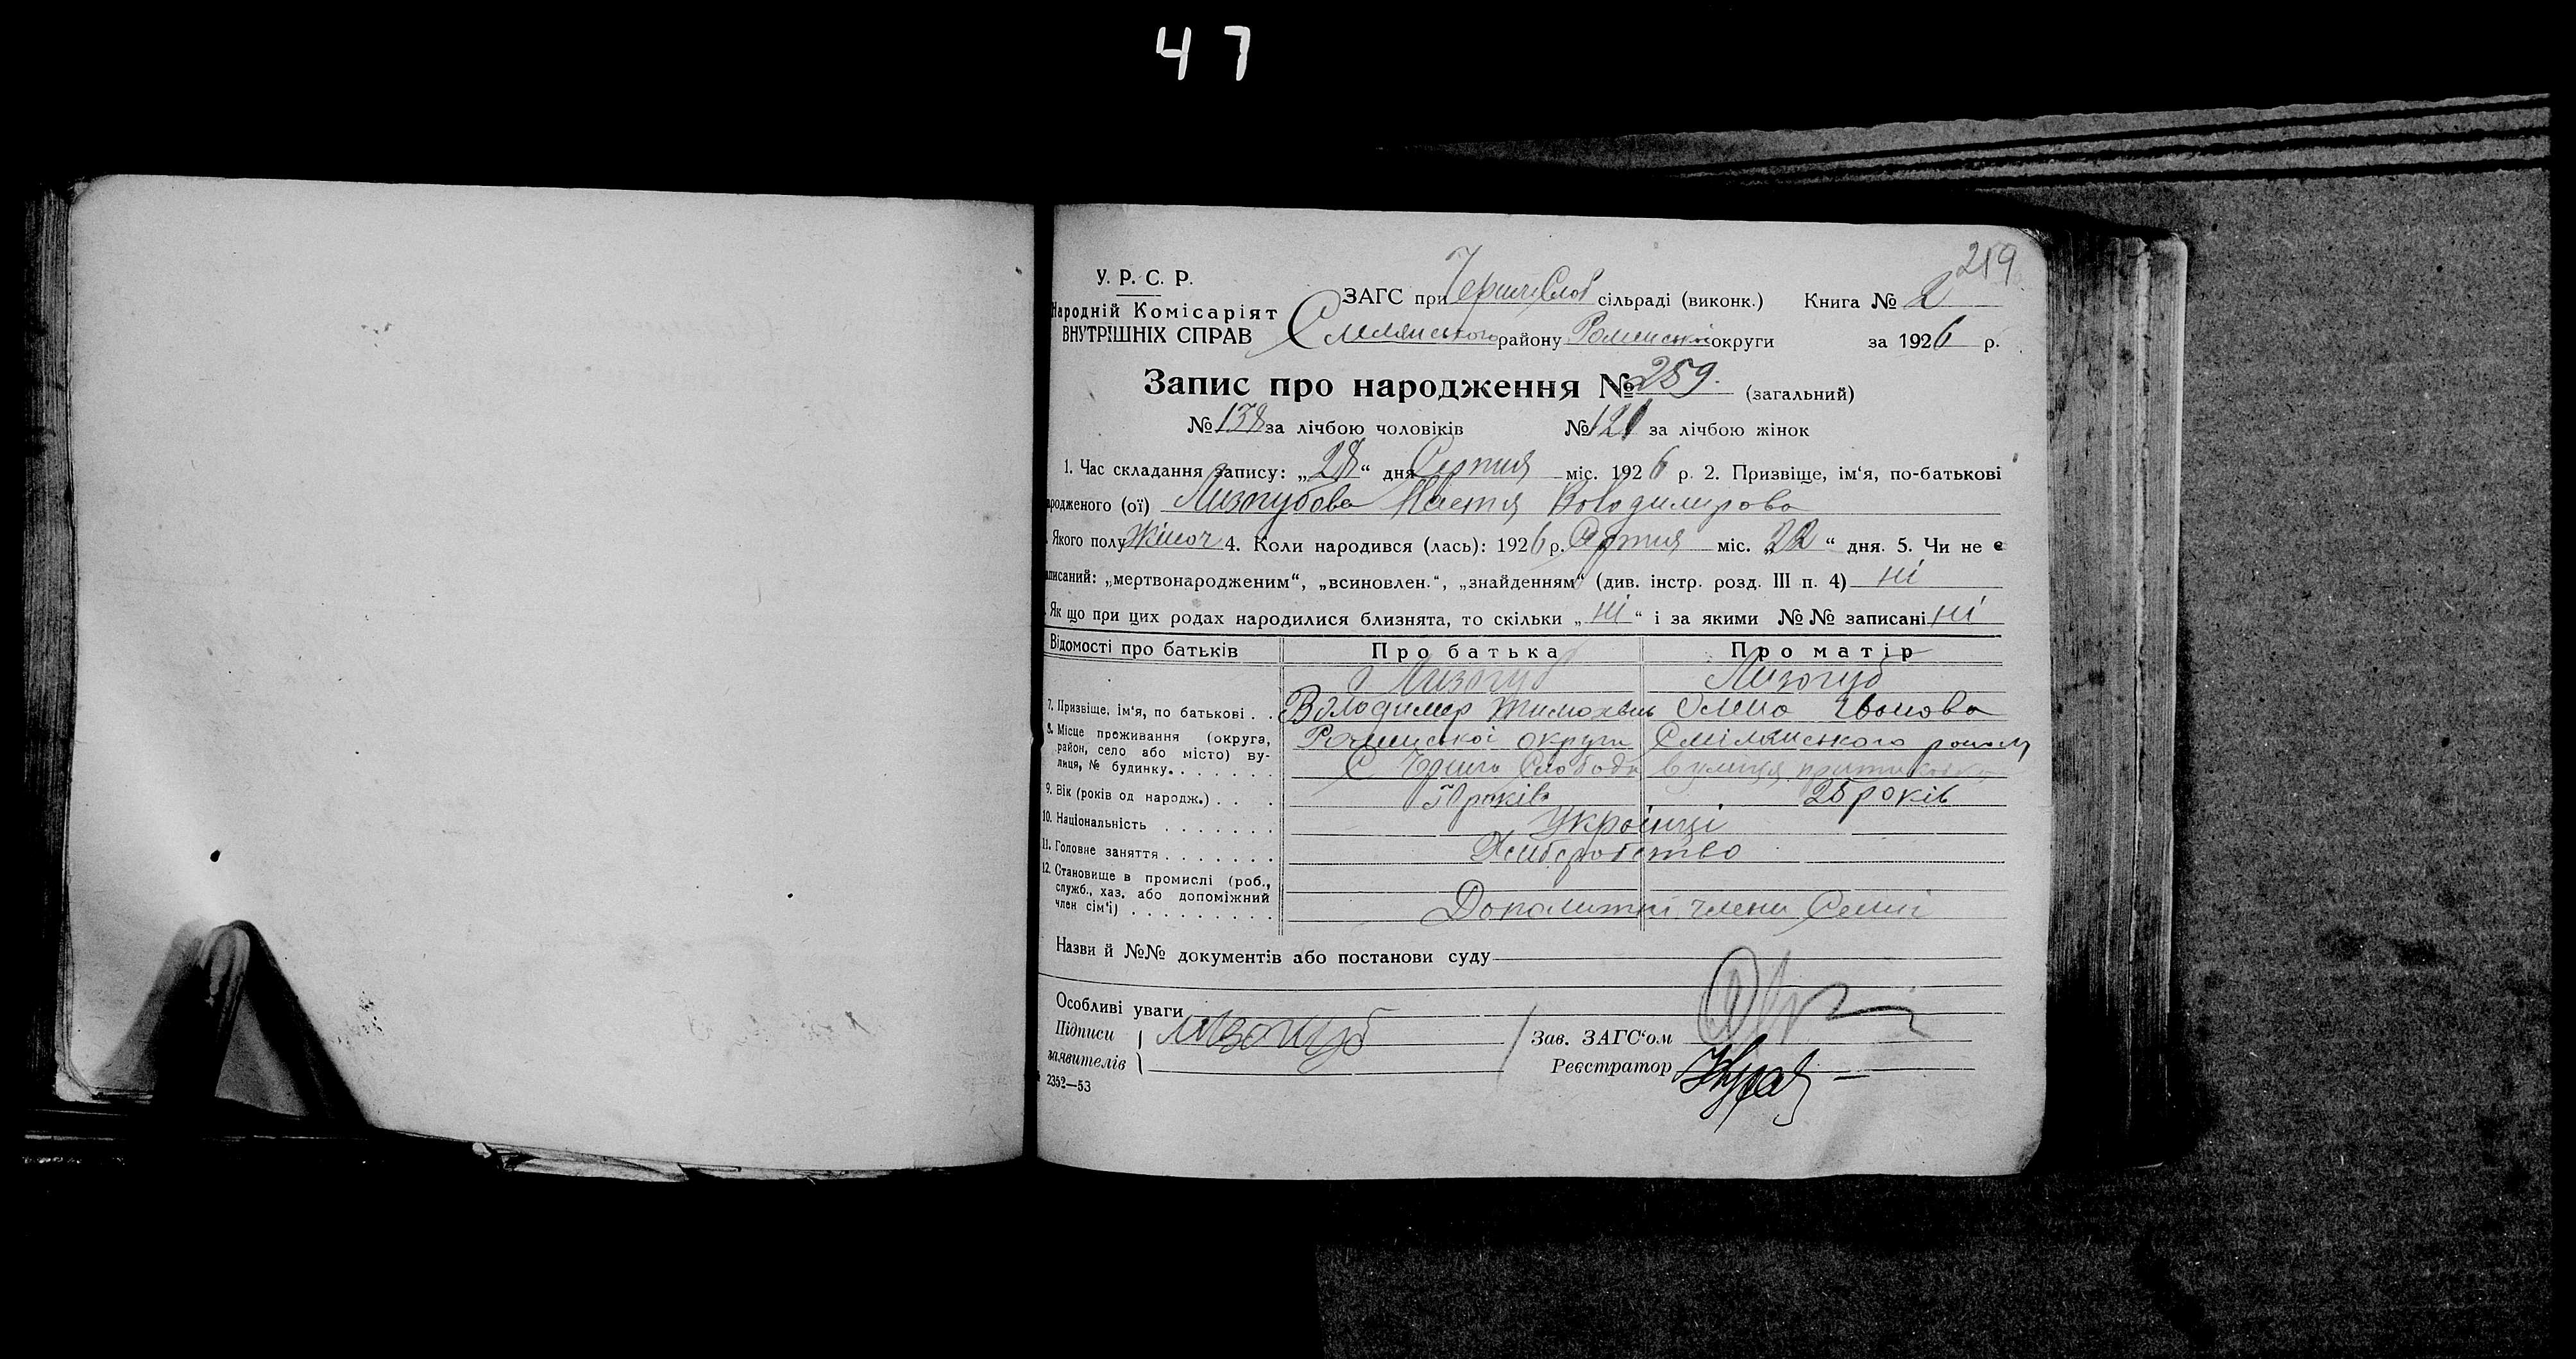 47
219
У. Р. С. Р.
Народній Комісаріят
ВНУТРІШНІХ СПРАВ
ЗАГС при Черничеслоб сільраді (виконк.) Книга № 2
Смілянського району Роменської округи за 1926 р.
Запис про народження № 259. (загальний)
№ 138 за лічбою чоловіків № 121 за лічбою жінок
1. Час складання запису: „28“ дня Серпня міс. 1926 р. 2. Призвіще, ім‘я, по-батькові
народженого (ої) Лизогубова Настя Володимирова
Якого полу Жіноч 4. Коли народився (лась): 1926 р. Серпня міс. „22“ дня. 5. Чи не є
записаний: „мертвонародженим“, „всиновлен.“, „знайденням“ (див. інстр. розд. III п. 4) ні
Як що при цих родах народилися близнята, то скільки „ні“ і за якими №№ записані ні
Відомості про батьків Про батька Про матір
Лизогуб Лизогуб
7. Призвіще, ім‘я, по батькові . . Володимер Тимохвіь Олена Іванова
8. Місце проживання (округа, район, село або місто) вулиця, № будинку. . . . . . . Роменської округи Смілянського району
С Слобода вулиця
9. Вік (років од народж.) . . . років 28 років
10. Національність . . . . . . . Українці
11. Головне заняття . . . . . . . Хліборобство
12. Становище в промислі (роб., служб., хаз. або допоміжний член сім‘ї) . . . . . . . . . члени Семії
Назви й №№ документів або постанови суду
Особливі уваги
Підписи заявителів Лизогуб
Зав. ЗАГС‘ом
Реєстратор
2352—53